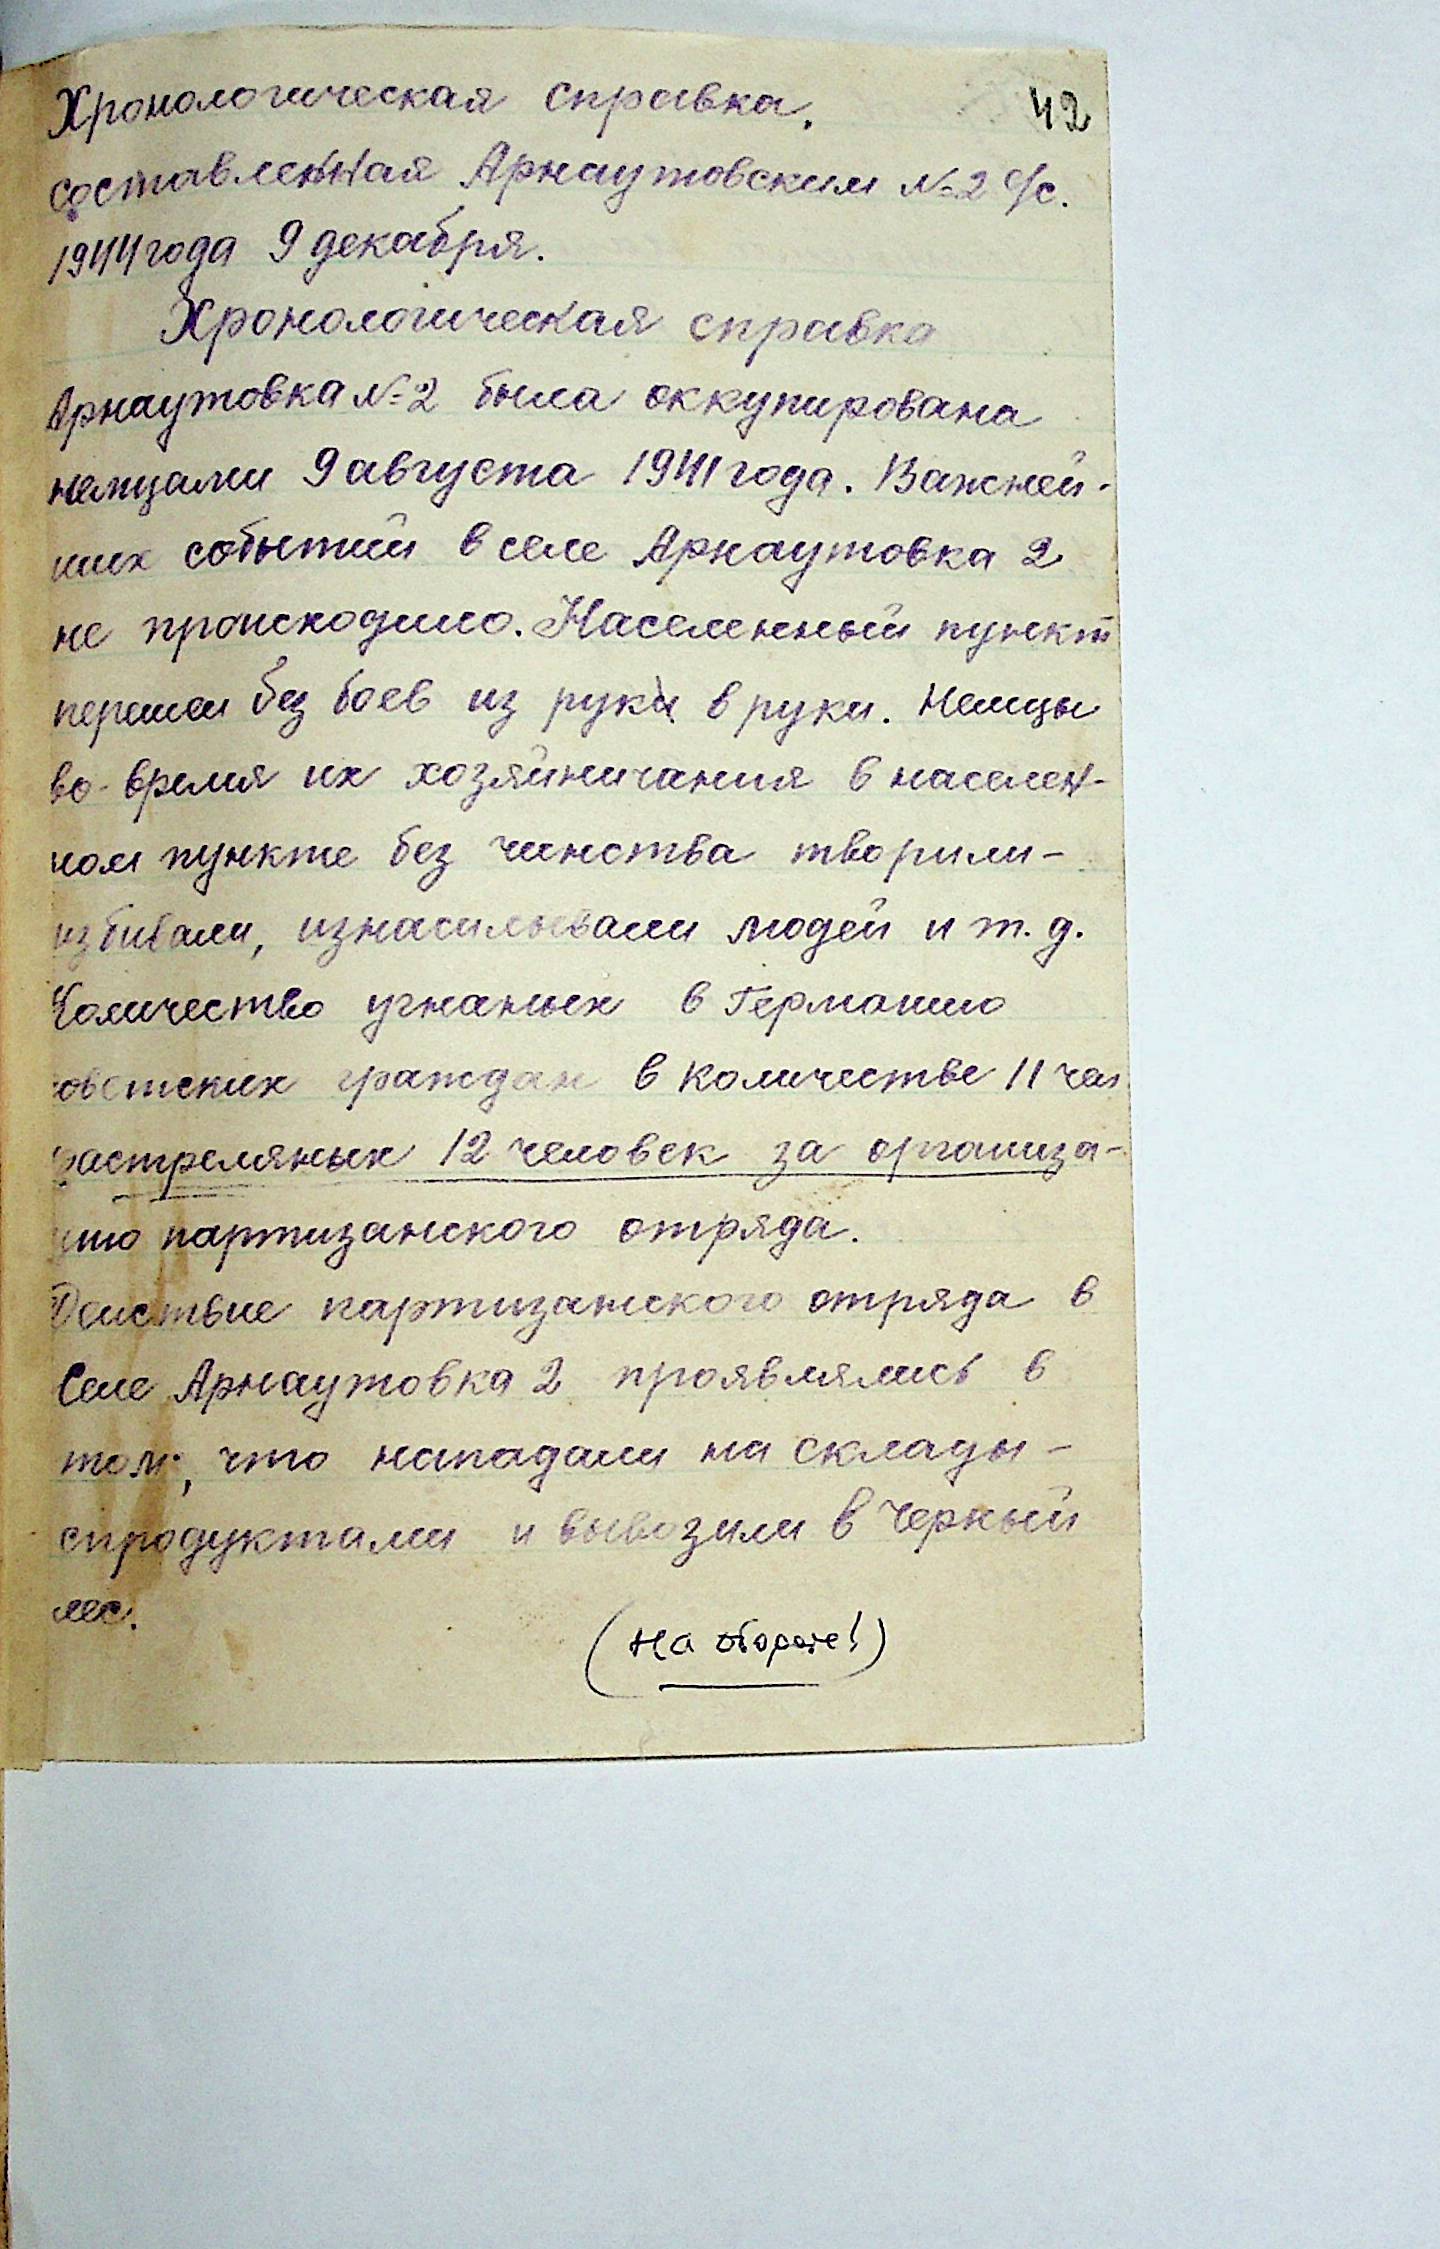 42
Хронологическая справка,
составленная Арнаутовским №2 с/с.
1944 года 9 декабря.
Хронологическая справка
Арнаутовка №2 была оккупирована
немцами 9 августа 1941 года. Важней-
ших событий в селе Арнаутовка 2
не происходило. Населенный пункт
перешел без боев из руки в руки. Немцы
во-время их хозяйничания в населен-
ном пункте без чинства творили-
избивали, изнасилывали людей и т.д.
Количество угнаных в Германию
советских граждан в количестве 11 чел
растреляных 12 человек за организа-
цию партизанского отряда.
Действие партизанского отряда в
селе Арнаутовка 2 проявлялись в
том, что нападали на склады-
спродуктами и вывозили в Черный
лес.
(на обороте!)